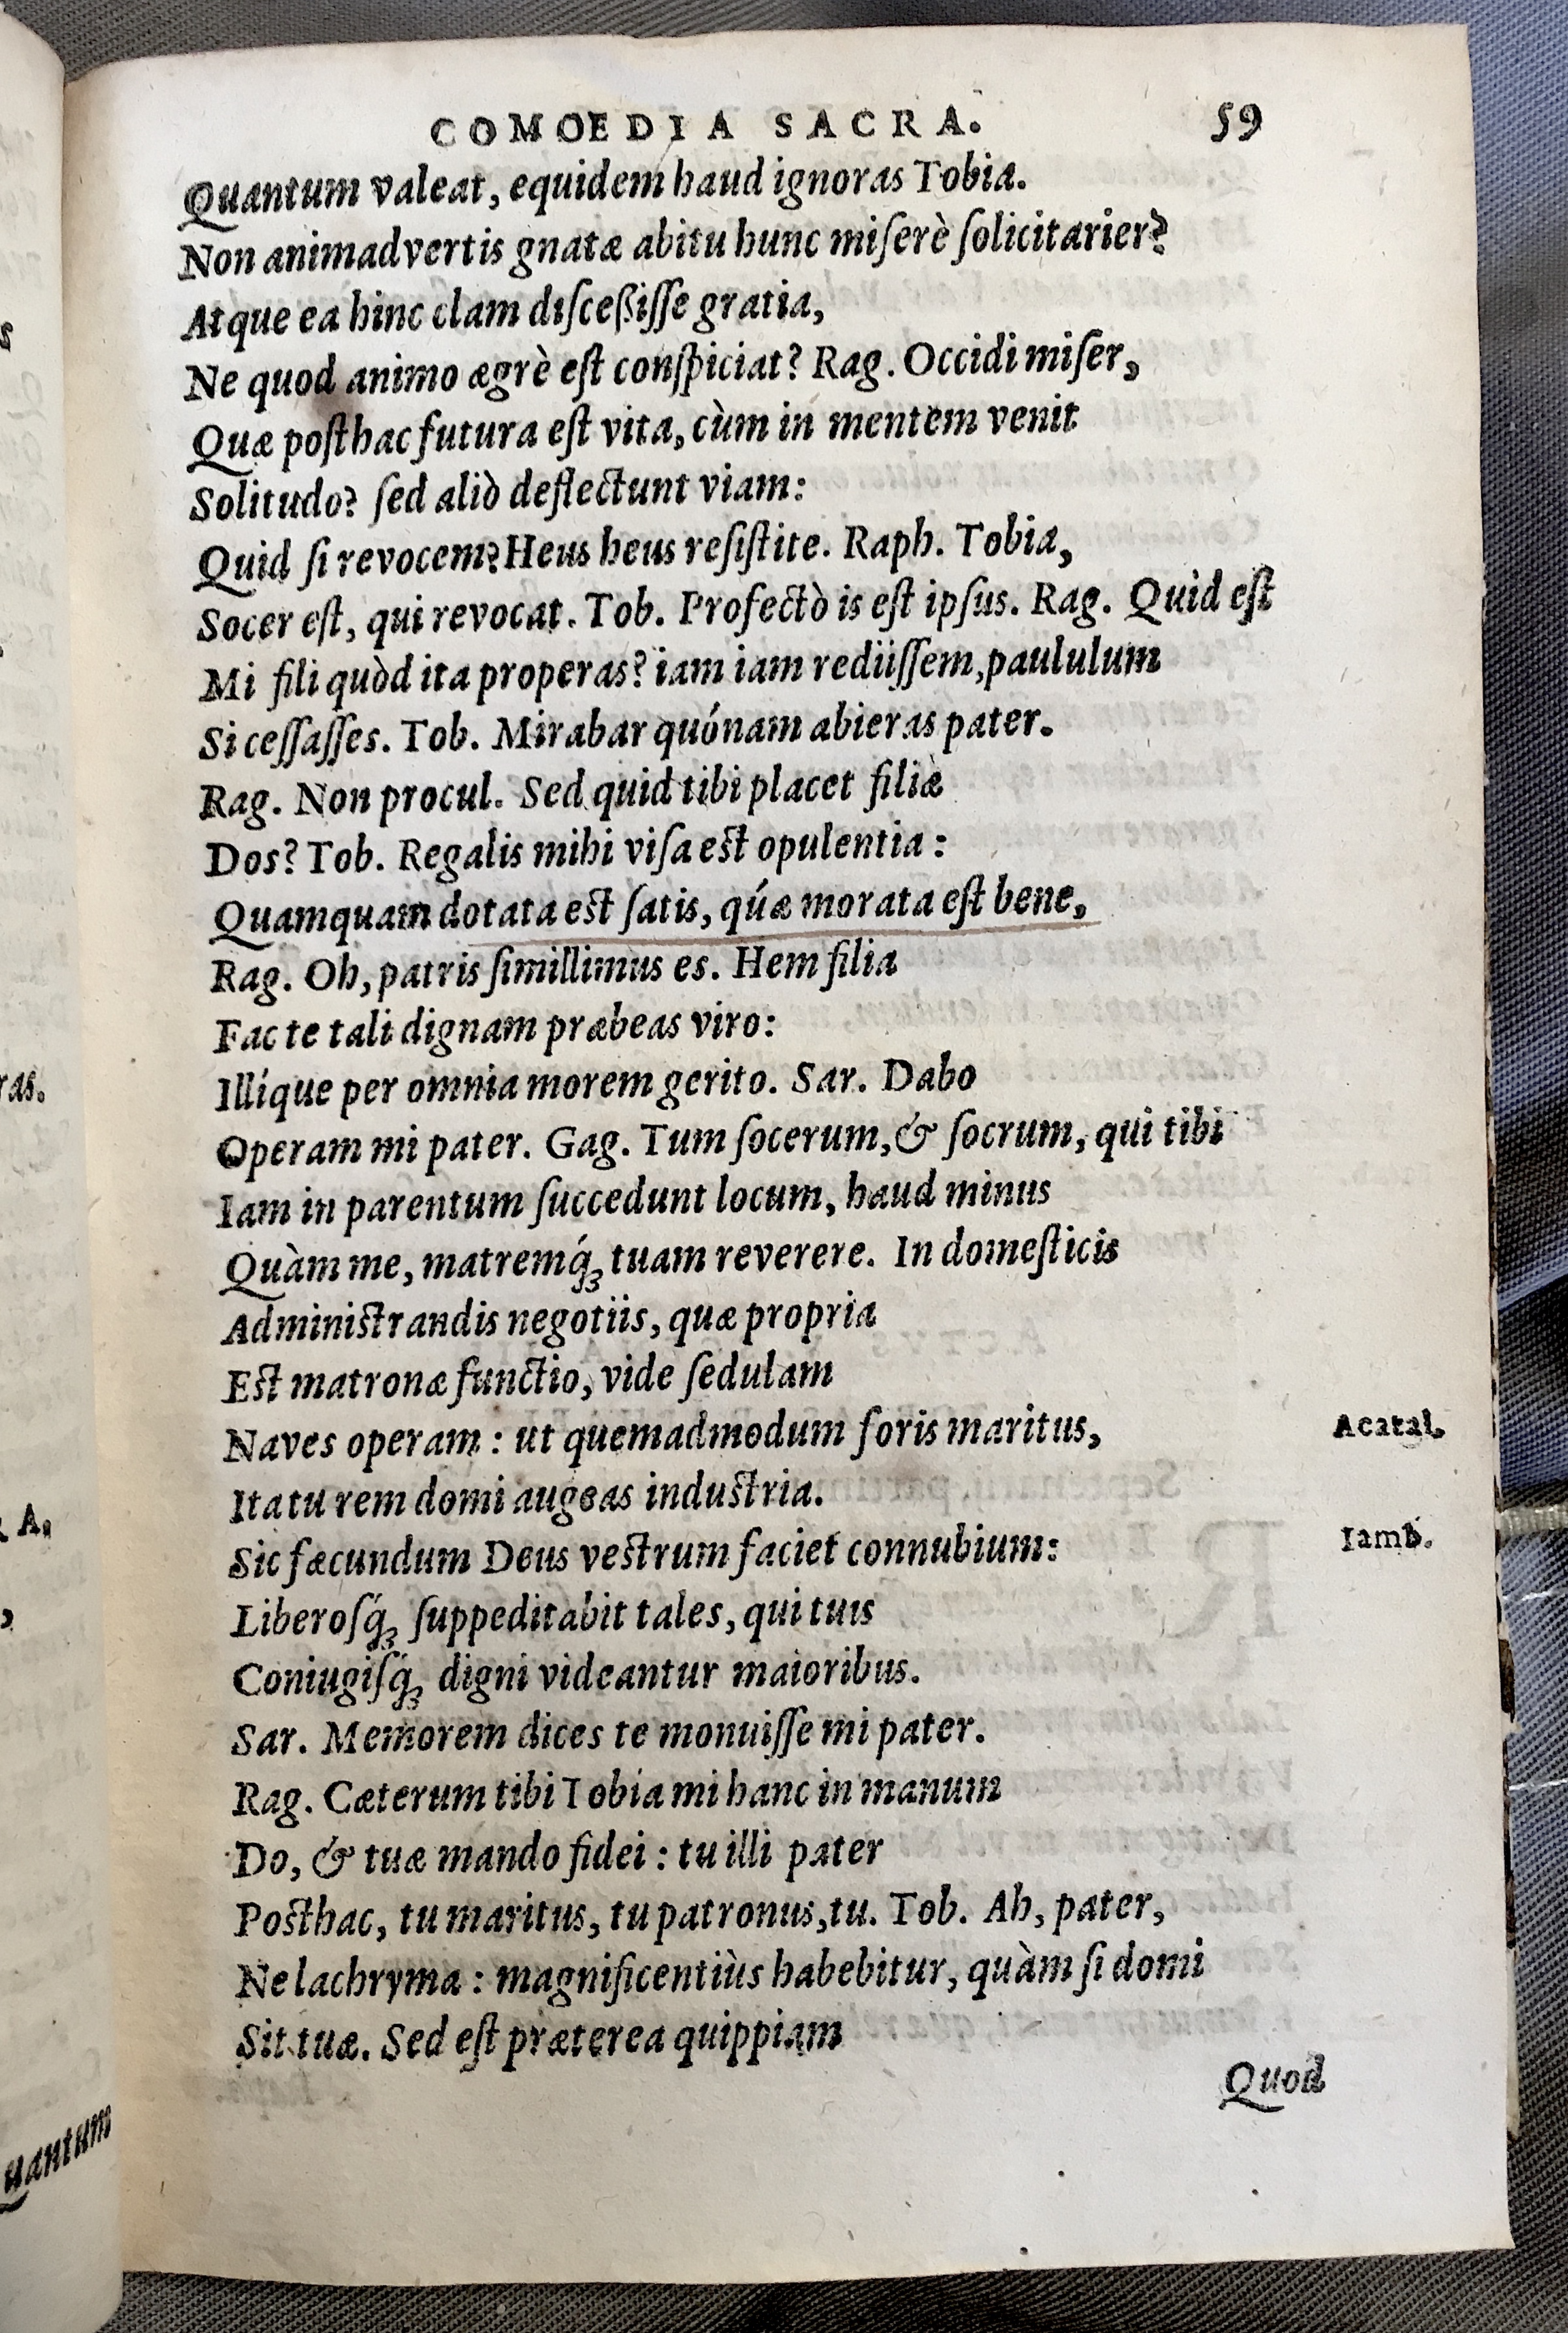 COMOEDIA SACRA. 59
Quantum valeat, equidem haud ignoras Tobia.
Non animadvertis gnatæ abitu hunc miſerè ſolicitarier?
Atque ea hinc clam diſceßiſſe gratia,
Ne quod animo ægrè eſt conſpiciat? Rag. Occidi miſer,
Quæ poſthac futura eſt vita, cùm in mentem venit
Solitudo? ſed aliò deflectunt viam:
Quid ſi revocem? Heus heus reſiſtite. Raph. Tobia,
Socer eſt, qui revocat. Tob. Profectò is eſt ipſus. Rag. Quid eſt
Mi fili quòd ita properas? iam iam rediiſſem, paululum
Si ceſſaſſes. Tob. Mirabar quónam abieras pater.
Rag. Non procul. Sed quid tibi placet filiæ
Dos? Tob. Regalis mihi viſa eſt opulentia:
Quamquam dotata eſt ſatis, quǽ morata eſt bene,
Rag. Oh, patris ſimillimus es. Hem filia
Fac te tali dignam præbeas viro:
Illíque per omnia morem gerito. Sar. Dabo
Operam mi pater. Gag. Tum ſocerum, & ſocrum, qui tibi
Iam in parentum ſuccedunt locum, haud minus
Quàm me, matremq́ꝫ tuam reverere. In domeſticis
Adminiſtrandis negotiis, quæ propria
Eſt matronæ functio, vide ſedulam
Naves operam: ut quemadmodum foris maritus, Acatal.
Ita tu rem domi augeas induſtria.
Sic fæcundum Deus veſtrum faciet connubium: Iamb.
Liberoſq́ꝫ ſuppeditabit tales, qui tuis
Coniugiſq́ꝫ digni videantur maioribus.
Sar. Memorem dices te monuiſſe mi pater.
Rag. Cæterum tibi Tobia mi hanc in manum
Do, & tuæ mando fidei: tu illi pater
Poſthac, tu maritus, tu patronus, tu. Tob. Ah, pater,
Ne lachryma: magnificentiùs habebitur, quàm ſi domi
Sit tuæ. Sed eſt præterea quippiam
Quod
s
ras.
A.
uantum